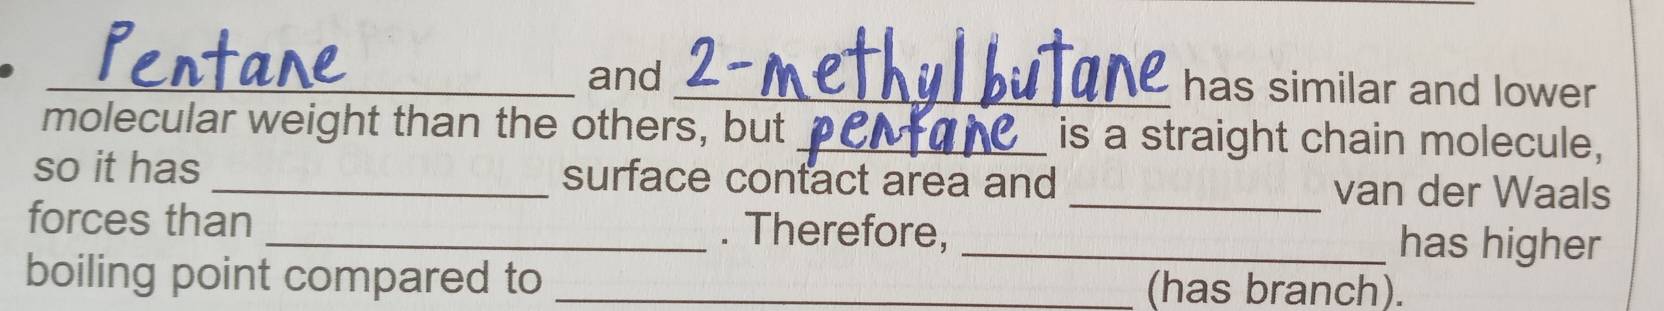 • Pentane and 2-methylbutane has similar and lower
molecular weight than the others, but pentane is a straight chain molecule,
so it has ____ surface contact area and ____ van der Waals
forces than ____. Therefore, ____ has higher
boiling point compared to ____ (has branch).